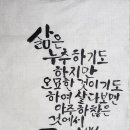 삶은
누추하기도
하지만
오묘한 것이기도
하여 살다보면
아주 하찮은
것에서